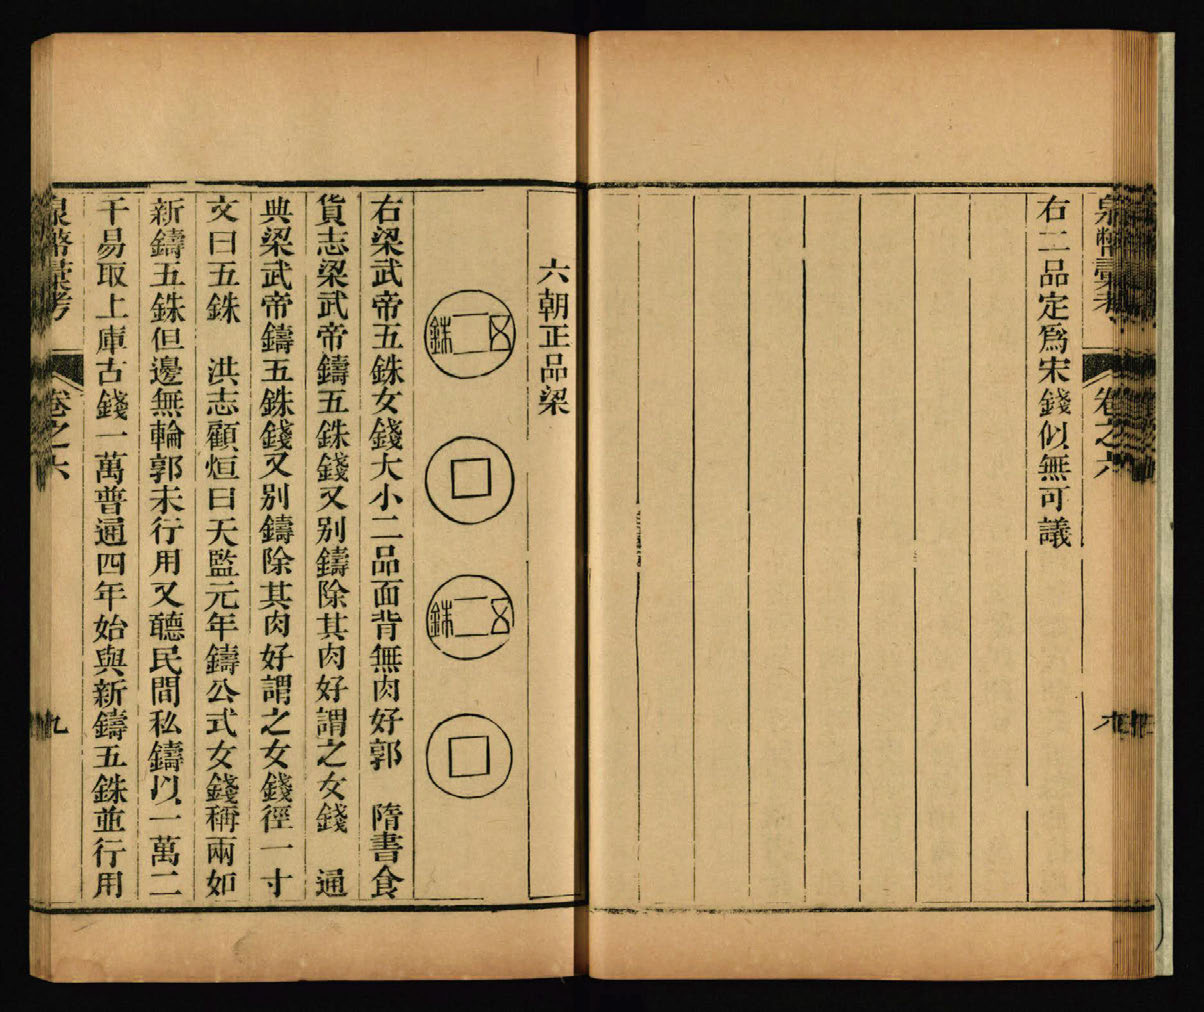 泉幣彙考 卷之六
右二品定爲宋錢似無可議
六朝正品梁
五銖
五銖
右梁武帝五銖女錢大小二品面背無肉好郭 隋書食
貨志梁武帝鑄五銖錢又别鑄除其肉好謂之女錢 通
典梁武帝鑄五銖錢又别鑄除其肉好謂之女錢徑一寸
文曰五銖 洪志顧烜曰天監元年鑄公式女錢稱兩如
新鑄五銖但邊無輪郭未行用又聽民間私鑄以一萬二
千易取上庫古錢一萬普通四年始與新鑄五銖並行用
泉幣彙考 卷之六 九